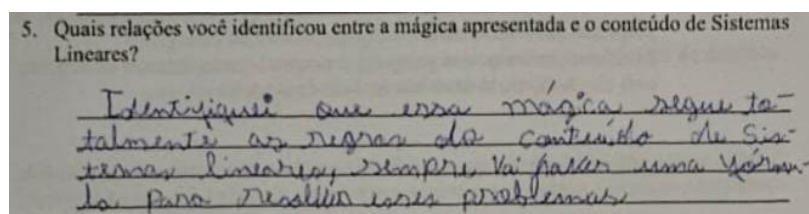 5. Quais relações você identificou entre a mágica apresentada e o conteúdo de Sistemas
Lineares?
Identifiquei que essa mágica segue to-
talmente as regras do conteúdo de Sis-
temas lineares, sempre vai uma fórmu-
la para resolver esses problemas